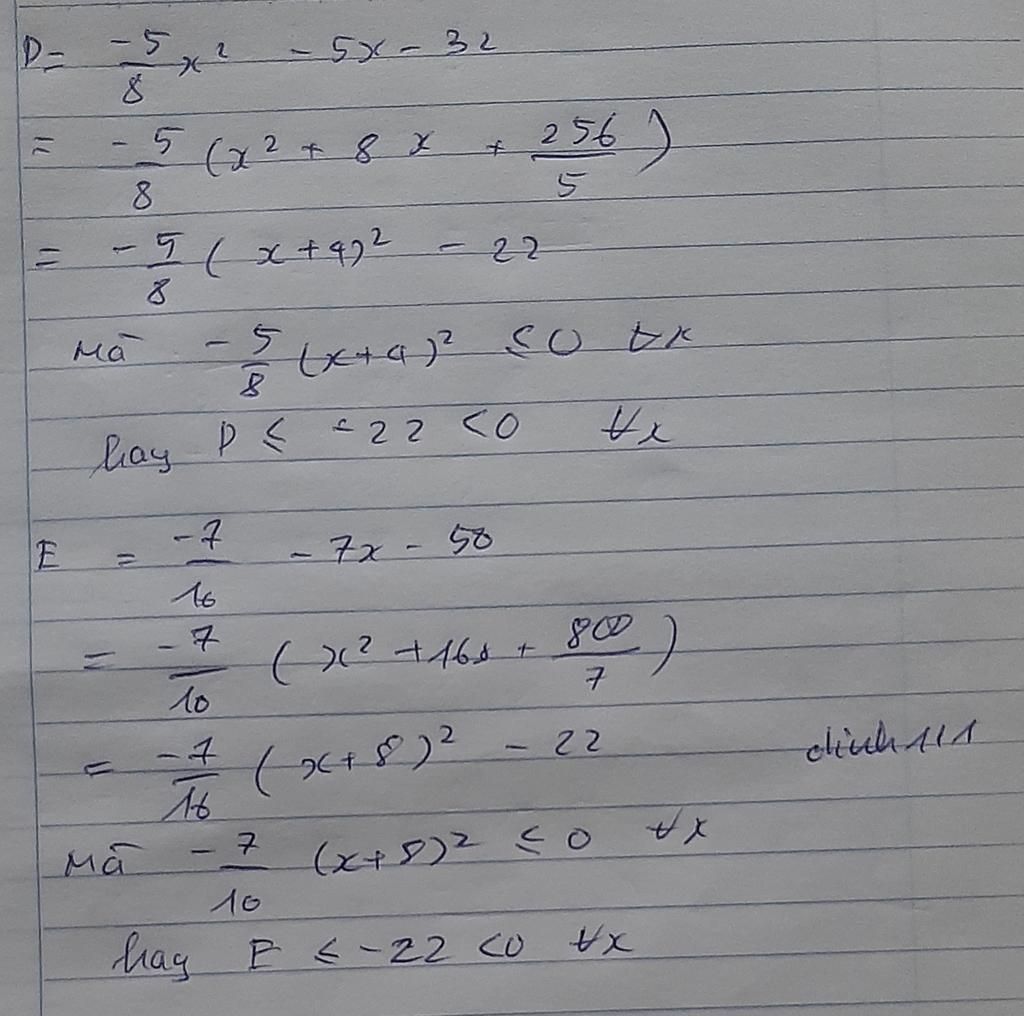 D = -5/8 x² - 5x - 32
= -5/8 (x² + 8x + 256/5)
= -5/8 (x+4)² - 22
Mà -5/8 (x+4)² ≤ 0 ∀x
hay D ≤ -22 < 0 ∀x
E = -7/16 - 7x - 50
= -7/10 (x² + 16x + 800/7)
= -7/16 (x+8)² - 22 dinh111
Mà -7/10 (x+8)² ≤ 0 ∀x
hay E ≤ -22 < 0 ∀x